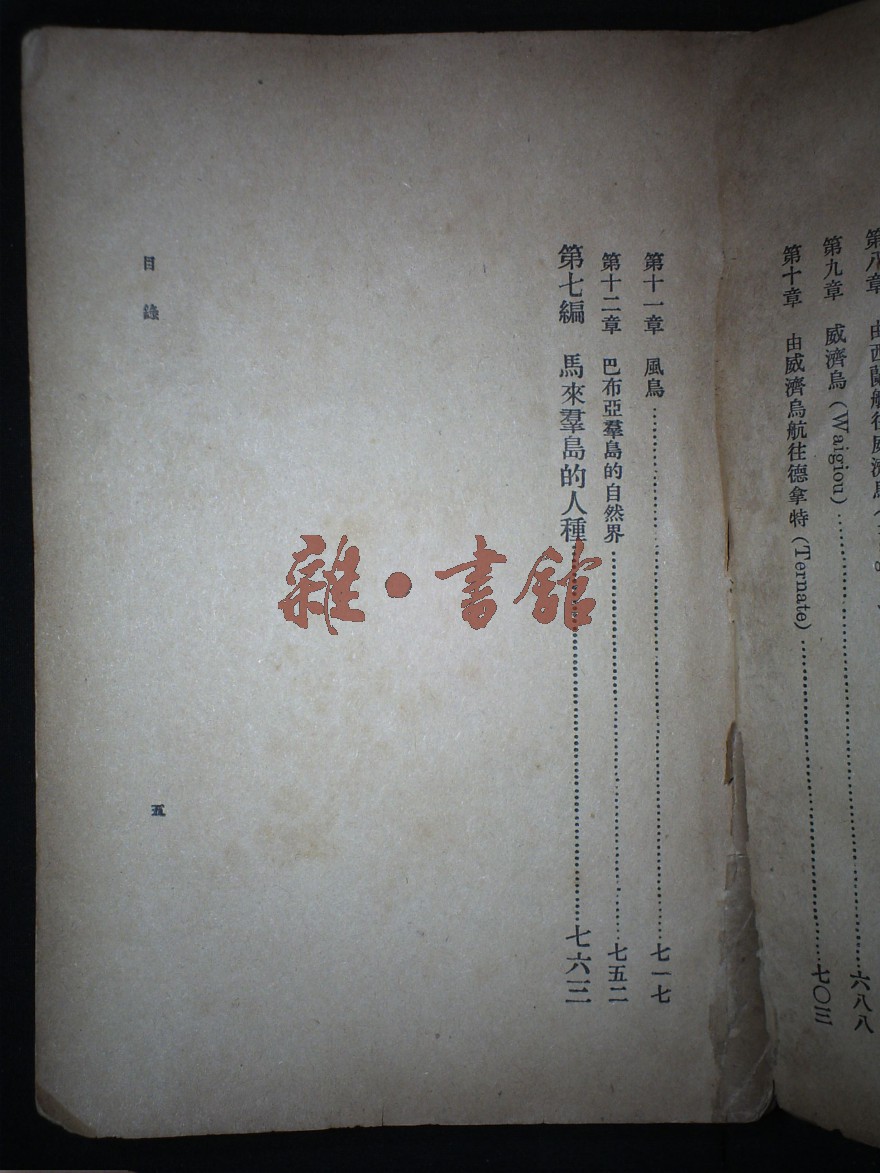 第八章 由西蘭航往威濟烏
第九章 威濟烏 (Waigiou)……六八八
第十章 由威濟烏航往德拿特 (Ternate)……七〇三
第十一章 風鳥……七一七
第十二章 巴布亞羣島的自然界……七五二
第七編 馬來羣島的人種……七六三
目錄
五
雜•書舘